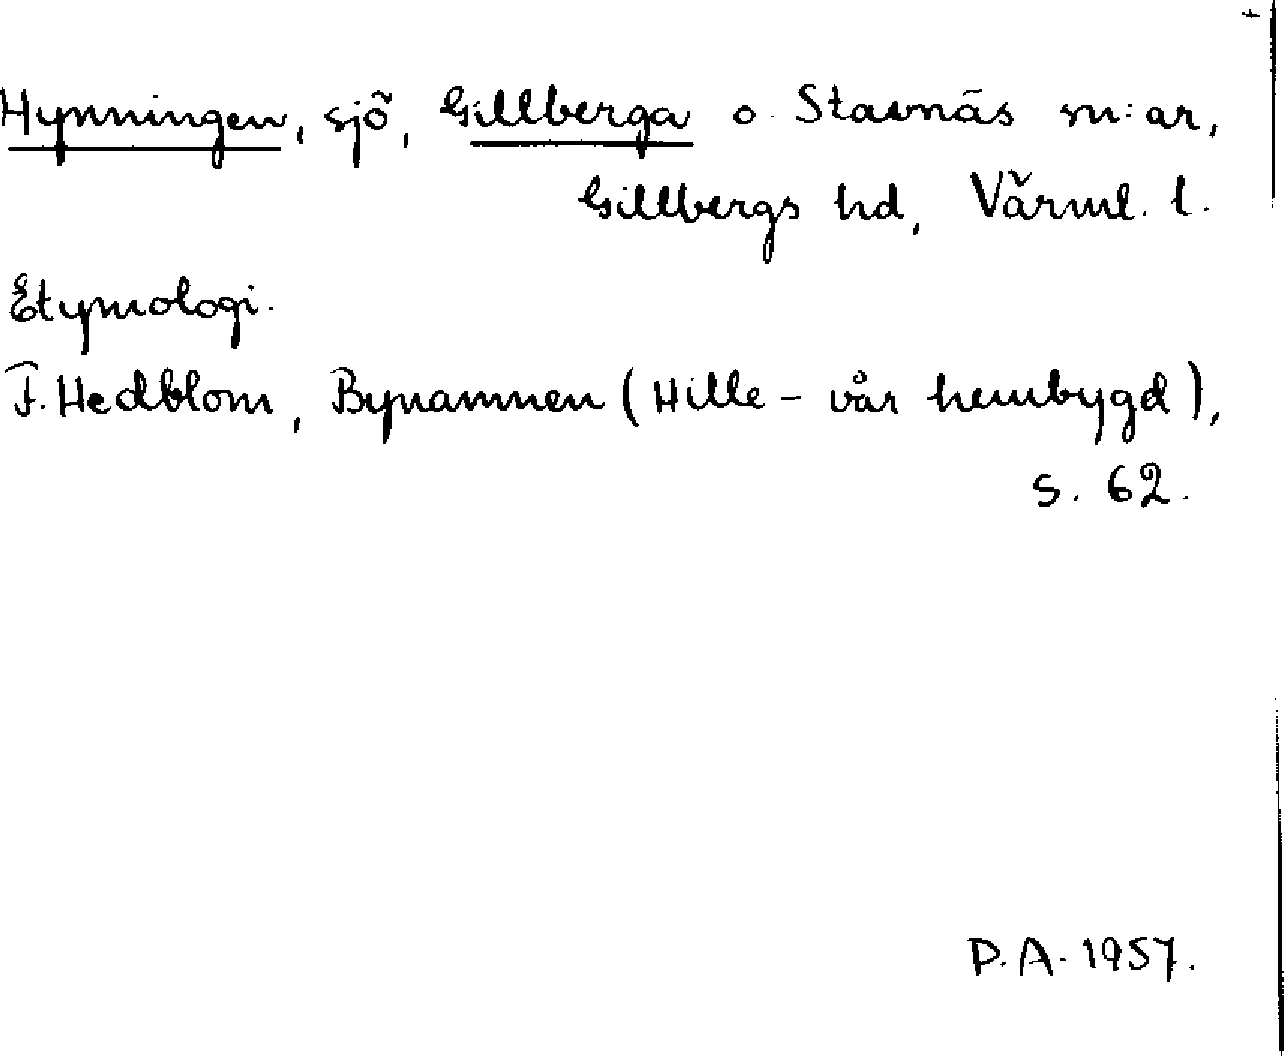 Hynningen, sjö, Gillberga o. Stavnäs sn:ar,
Gillbergs hd, Värml. l.
Etymologi.
F. Hedblom, Bynamnen (Hille - vår hembygd),
s. 62.
D.A. 1957.